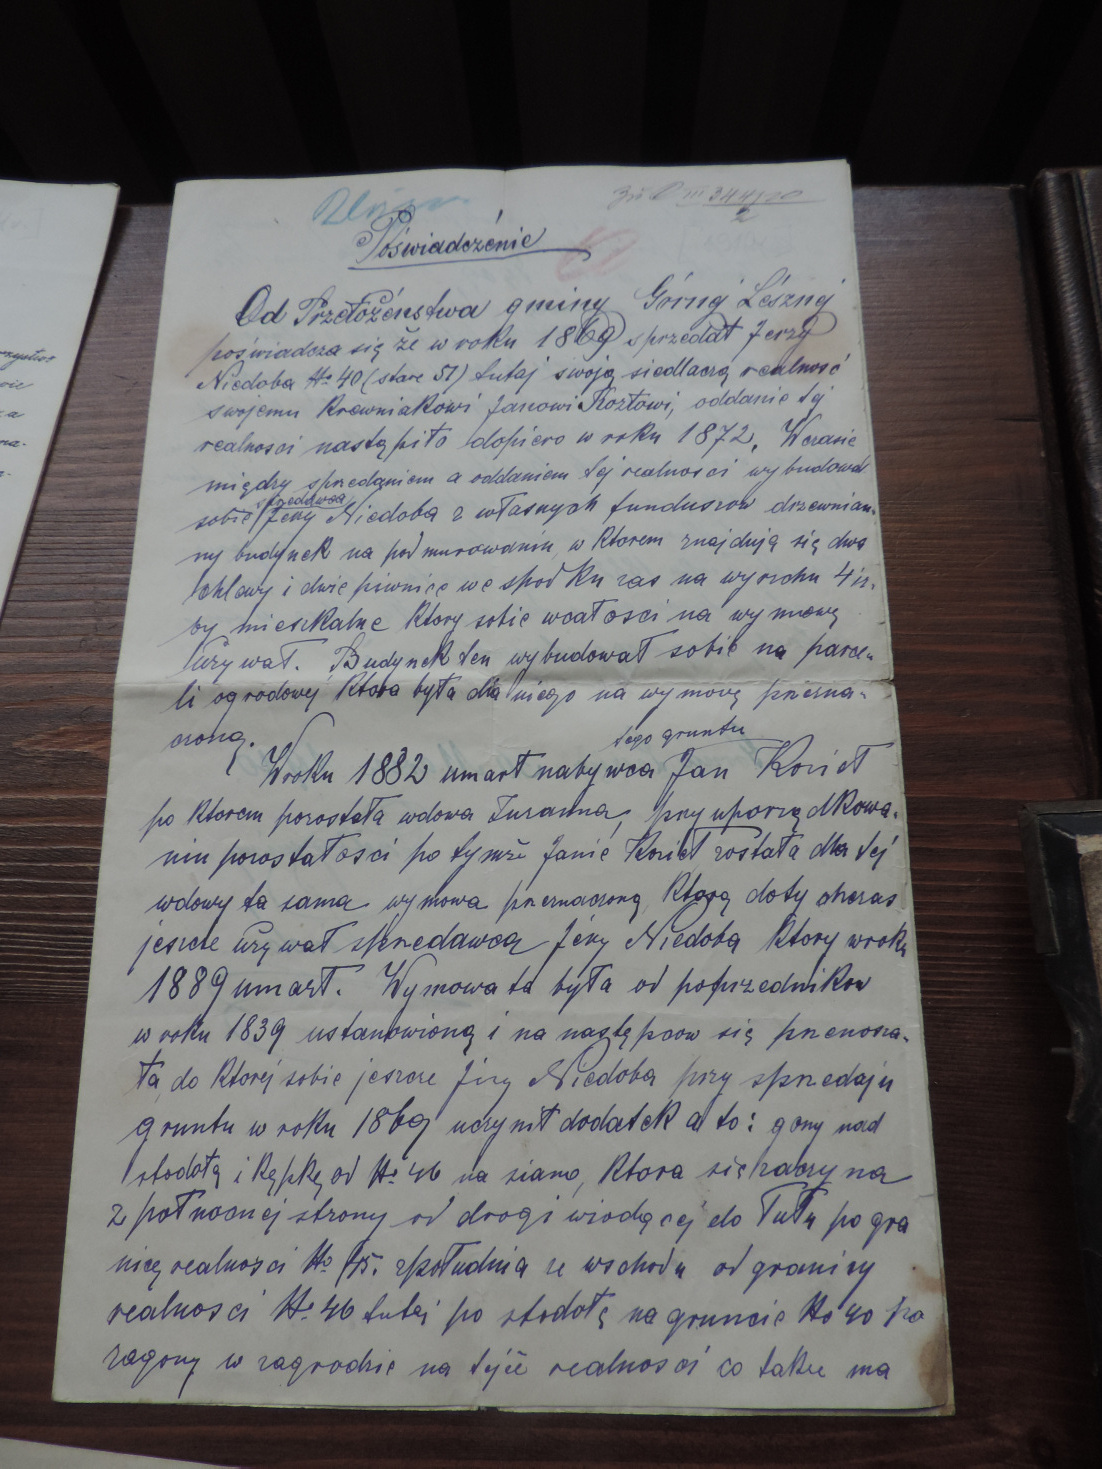 Poświadczenie
Od Przełożeństwa gminy Górnej Lésznej
poświadcza się że w roku 1869 sprzedał Jerzy
Niedoba No 40 (stare 51) tutaj swoją siedlaczą realność
swojemu krewniakowi Janowi Kozłowi, oddanie tej
realności nastąpiło dopiero w roku 1872. W czasie
między sprzedaniem a oddaniem tej realności wybudował
sprzedawca
sobie Jerzy Niedoba z własnych funduszow drzewnian-
ny budynek na podmurowaniu, w ktorem znajdują się dwa
chlewy i dwie piwnice we spodku zas na wyrzchu 4 iz-
by mieszkalne ktory sobie wcałości na wymowę
używał. Budynek ten wybudował sobie na parce-
li ogrodowej ktora była dla niego na wymovę przezna-
czoną.
tego gruntu
W roku 1882 umarł nabywca Jan Kozieł
po ktorem pozostała wdowa Zuzanna, przy uporządkowa-
niu pozostałosci po tymże Janie Kozieł została dla tej
wdowy ta sama wymowa przeznaczoną, ktorą doty chczas
jeszcze używał sprzedawca Jerzy Niedoba ktory w roku
1889 umarł. Wymowa ta była od poprzednikow
w roku 1839 ustanowioną i na następcow się przenosza-
ła, do ktorej sobie jeszcze Jerzy Niedoba przy sprzedaju
gruntu w roku 1869 uczynił dodatek a to: gony nad
stodołą i kępkę od No 46 na siano, ktora się zaczyna
z północnej strony od drogi wiodącej do Tułu po gra
nicę realności No 45. zpołudnia ze wschodu od granicy
realnosci No 46 tutej po stodołę na gruncie No 40 pra
zagony w zagrodzie na tejże realnosci co także ma